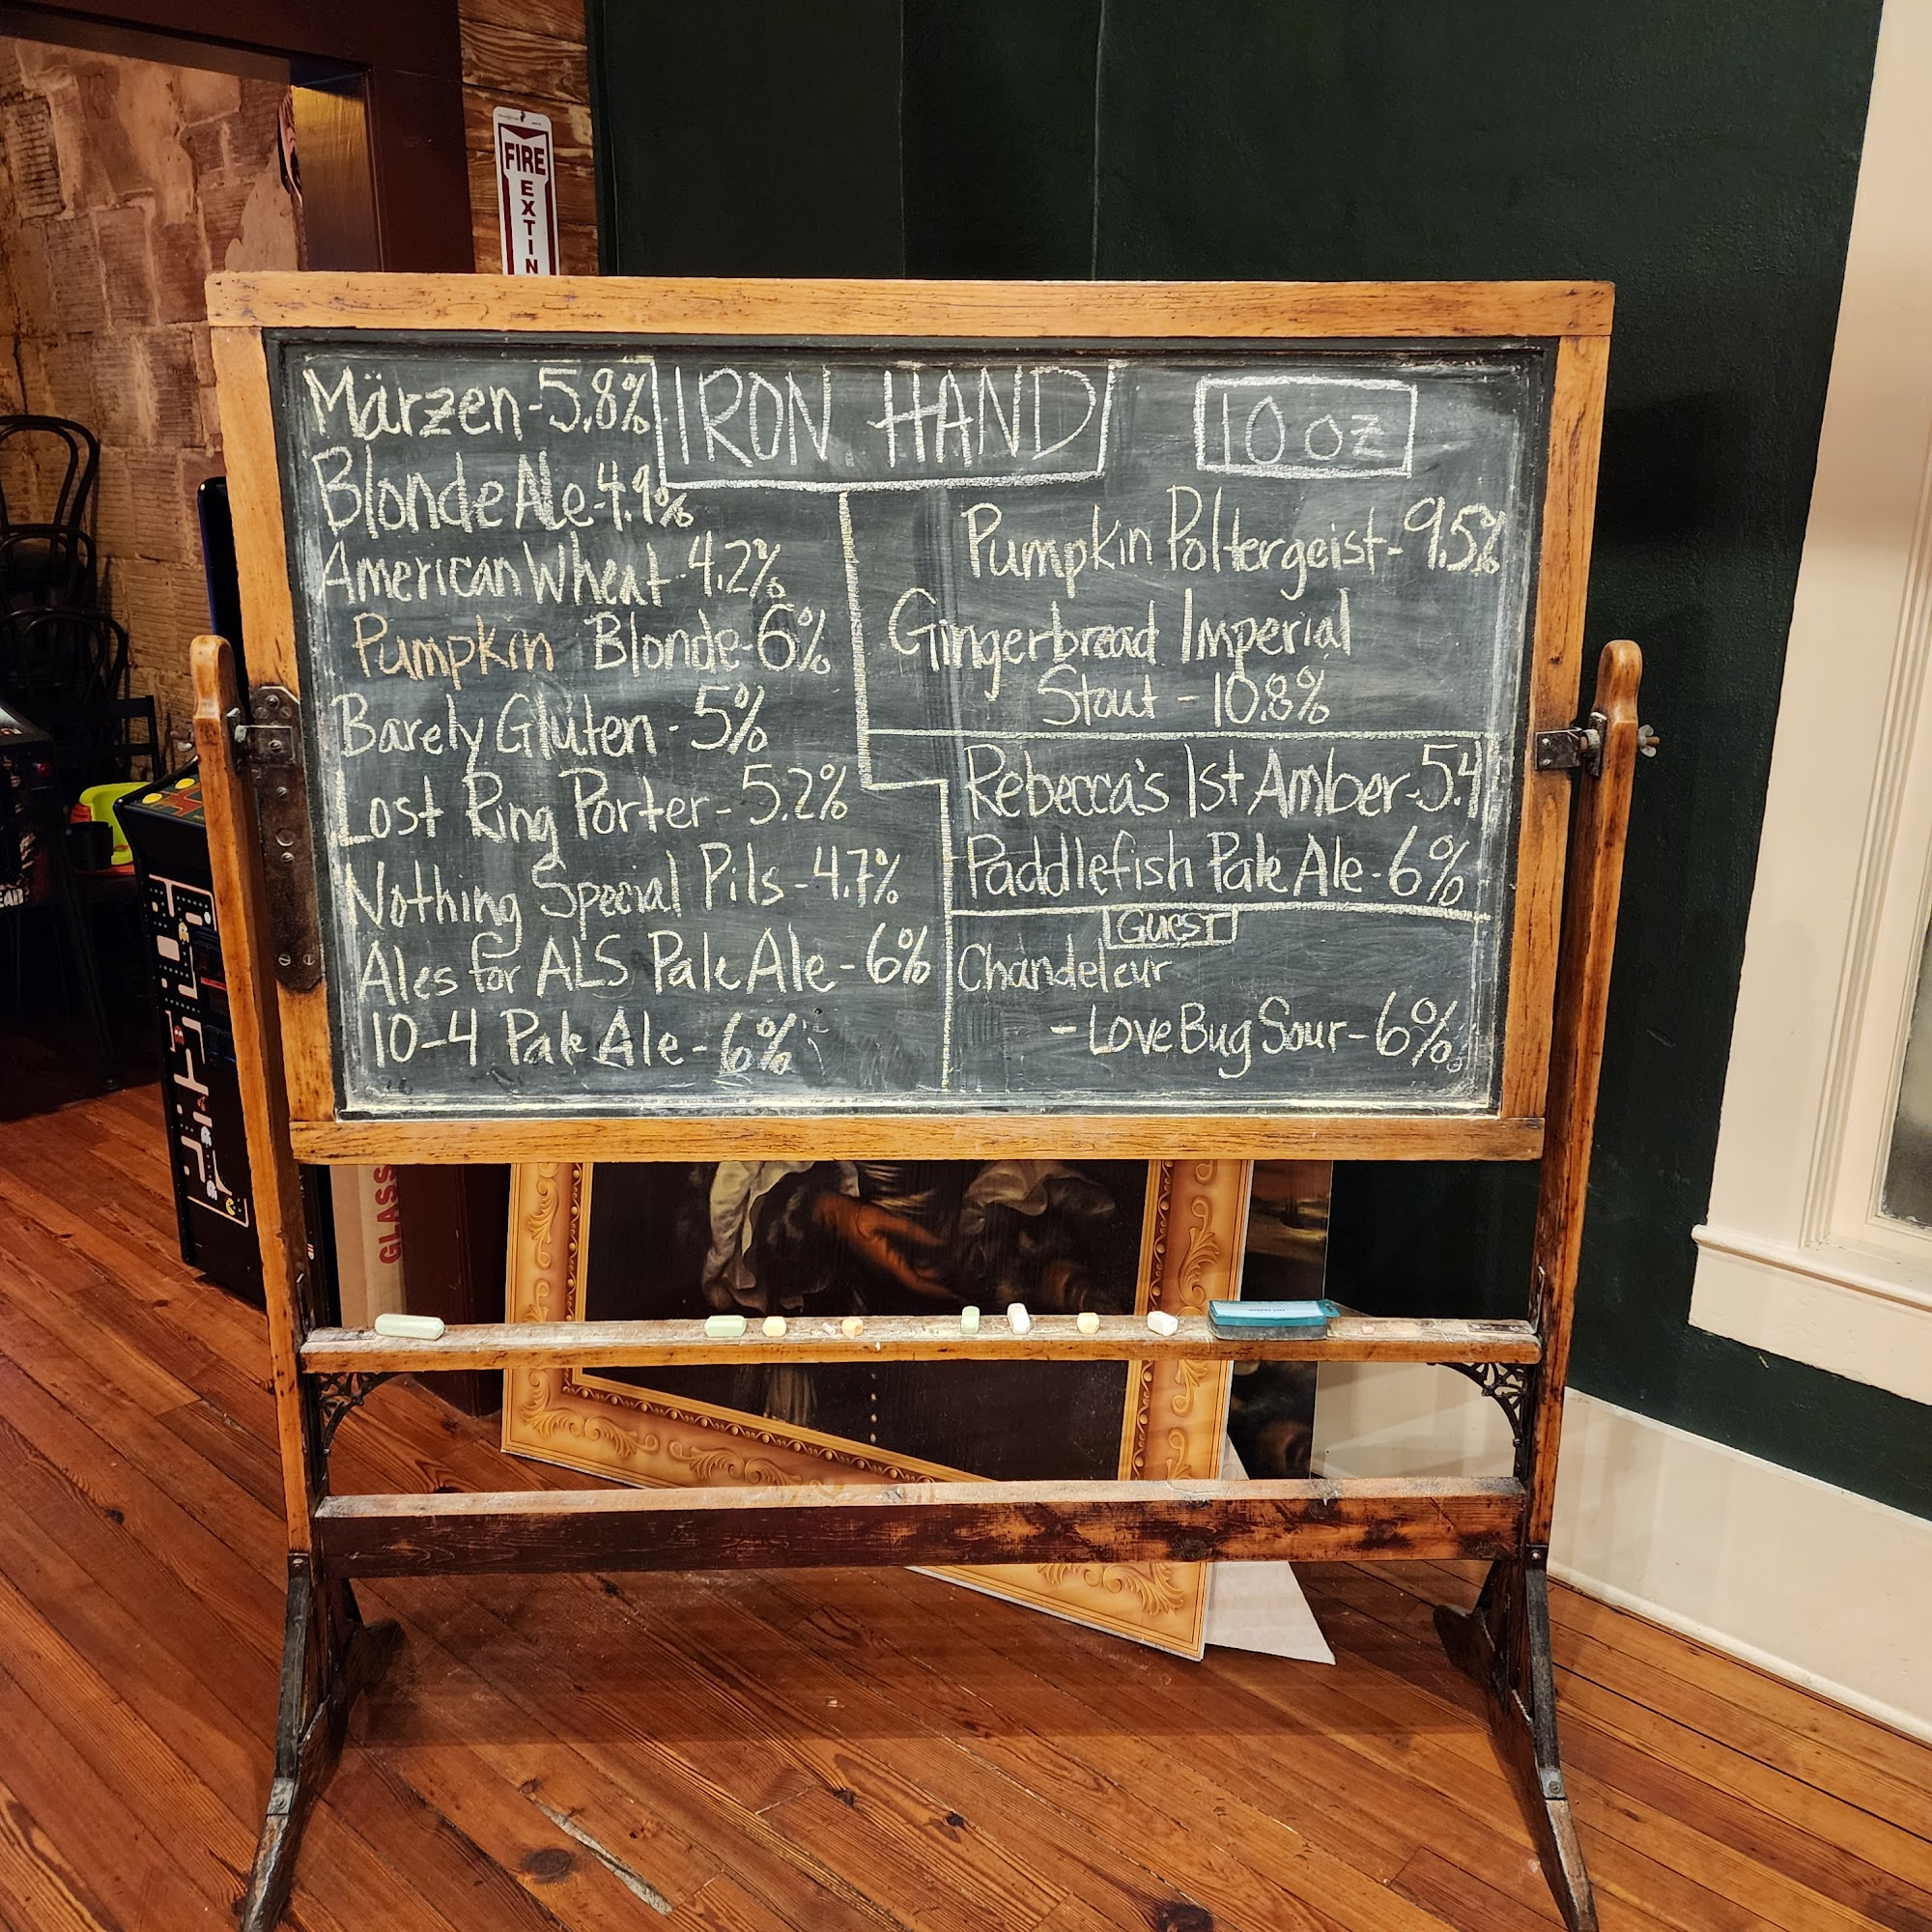 FIRE
EXTIN
IRON HAND
Märzen-5.8%
Blonde Ale-4.9%
American Wheat-4.2%
Pumpkin Blonde-6%
Barely Gluten-5%
Lost Ring Porter-5.2%
Nothing Special Pils-4.7%
Ales for ALS Pale Ale-6%
10-4 Pale Ale-6%
10 oz
Pumpkin Poltergeist-9.5%
Gingerbread Imperial
Stout-10.8%
Rebecca's 1st Amber-5.4
Paddlefish Pale Ale-6%
Guest
Chandeleur
-LoveBug Sour-6%
GLASS